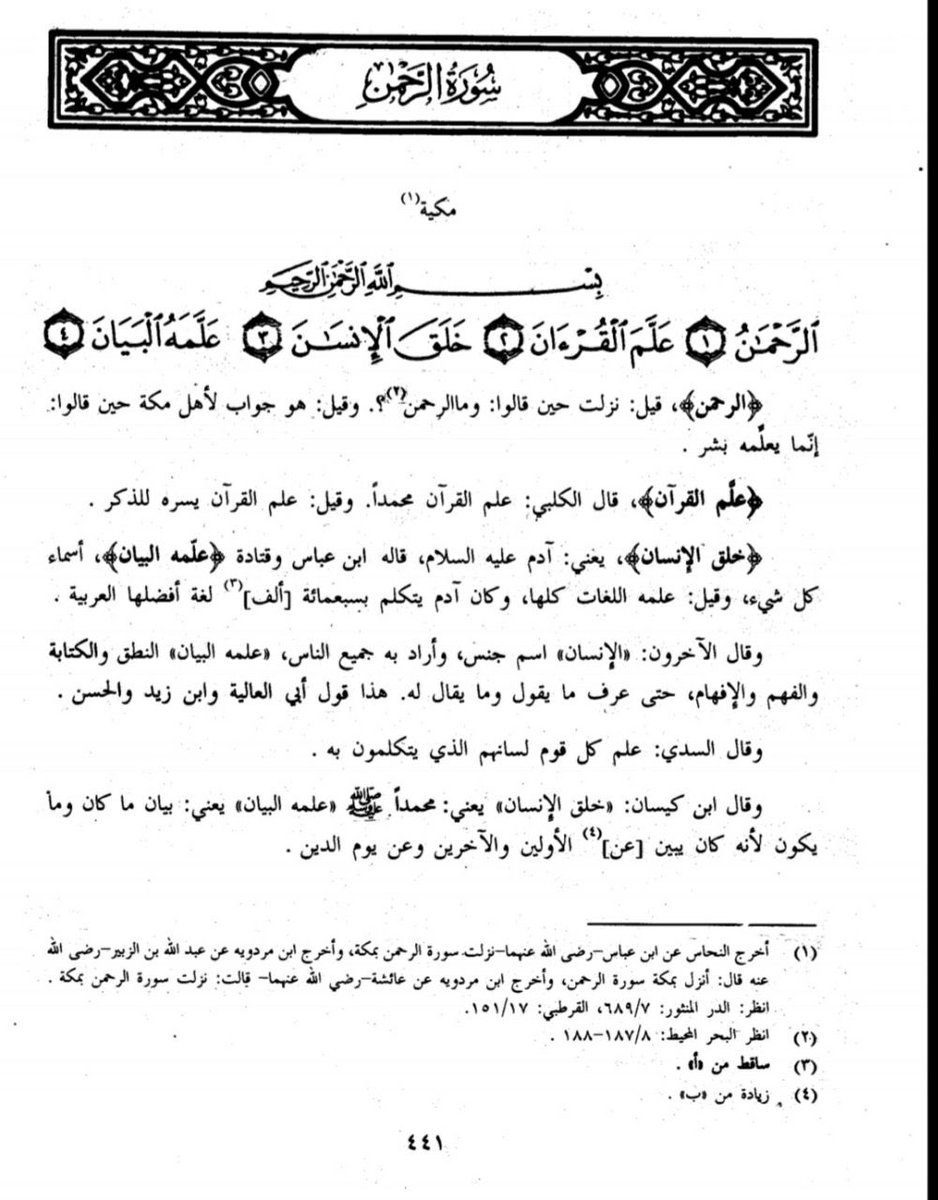 سُورَةُ الرَّحْمٰن
مكية(١)
بِسْمِ اللَّهِ الرَّحْمَٰنِ الرَّحِيمِ
الرَّحْمَـٰنُ ١ عَلَّمَ الْقُرْءَانَ ٢ خَلَقَ الْإِنسَـٰنَ ٣ عَلَّمَهُ الْبَيَانَ ٤
﴿الرحمن﴾، قيل: نزلت حين قالوا: وماالرحمن(٢)؟. وقيل: هو جواب لأهل مكة حين قالوا:
إنّما يعلّمه بشر .
﴿علَّم القرآن﴾، قال الكلبي: علم القرآن محمداً. وقيل: علم القرآن يسره للذكر .
﴿خلق الإنسان﴾، يعني: آدم عليه السلام، قاله ابن عباس وقتادة ﴿علّمه البيان﴾، أسماء
كل شيء، وقيل: علمه اللغات كلها، وكان آدم يتكلم بسبعمائة [ألف](٣) لغة أفضلها العربية .
وقال الآخرون: «الإنسان» اسم جنس، وأراد به جميع الناس، «علمه البيان» النطق والكتابة
والفهم والإفهام، حتى عرف ما يقول وما يقال له. هذا قول أبي العالية وابن زيد والحسن .
وقال السدي: علم كل قوم لسانهم الذي يتكلمون به .
وقال ابن كيسان: «خلق الإنسان» يعني: محمداً ﷺ «علمه البيان» يعني: بيان ما كان وما
يكون لأنه كان يبين [عن](٤) الأولين والآخرين وعن يوم الدين .
(١) أخرج النحاس عن ابن عباس–رضى الله عنهما–نزلت سورة الرحمن بمكة، وأخرج ابن مردويه عن عبد الله بن الزبير–رضى الله
عنه قال: أنزل بمكة سورة الرحمن، وأخرج ابن مردويه عن عائشة–رضي الله عنهما– قالت: نزلت سورة الرحمن بمكة .
انظر: الدر المنثور: ٦٨٩/٧، القرطبي: ١٥١/١٧.
(٢) انظر البحر المحيط: ١٨٧/٨–١٨٨ .
(٣) ساقط من «أ» .
(٤) زيادة من «ب» .
٤٤١